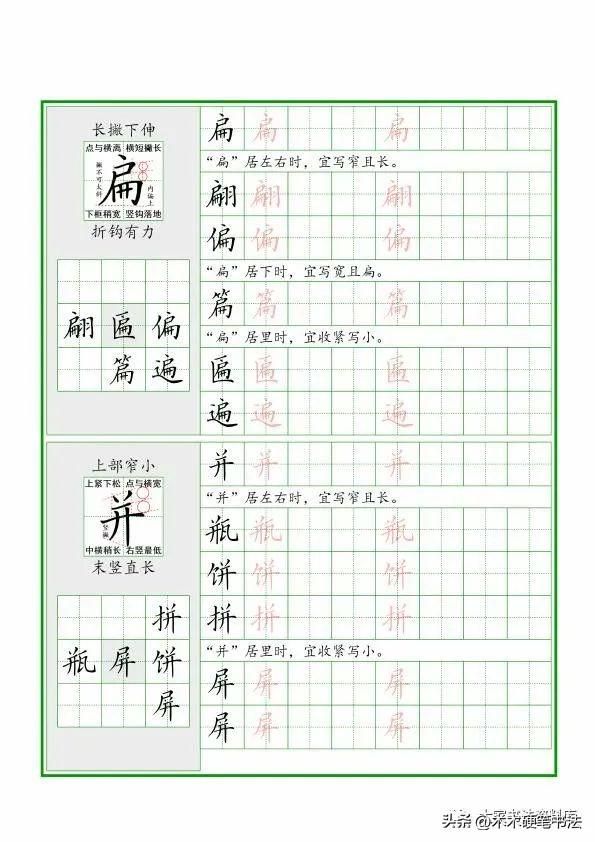 长撇下伸
点与横离 横短撇长
撇不可太斜
扁
内偏上
下框稍宽 竖钩落地
折钩有力
翩 匾 偏
篇 遍
扁 扁 扁
“扁”居左右时，宜写窄且长。
翩 翩 翩
偏 偏 偏
“扁”居下时，宜写宽且扁。
篇 篇 篇
“扁”居里时，宜收紧写小。
匾 匾 匾
遍 遍 遍
上部窄小
上紧下松 点与横宽
竖撇
并
中横稍长 右竖最低
末竖直长
拼
瓶 屏 饼
屏
并 并 并
“并”居左右时，宜写窄且长。
瓶 瓶 瓶
饼 饼 饼
拼 拼 拼
“并”居里时，宜收紧写小。
屏 屏 屏
屏 屏 屏
头条 @木木硬笔书法